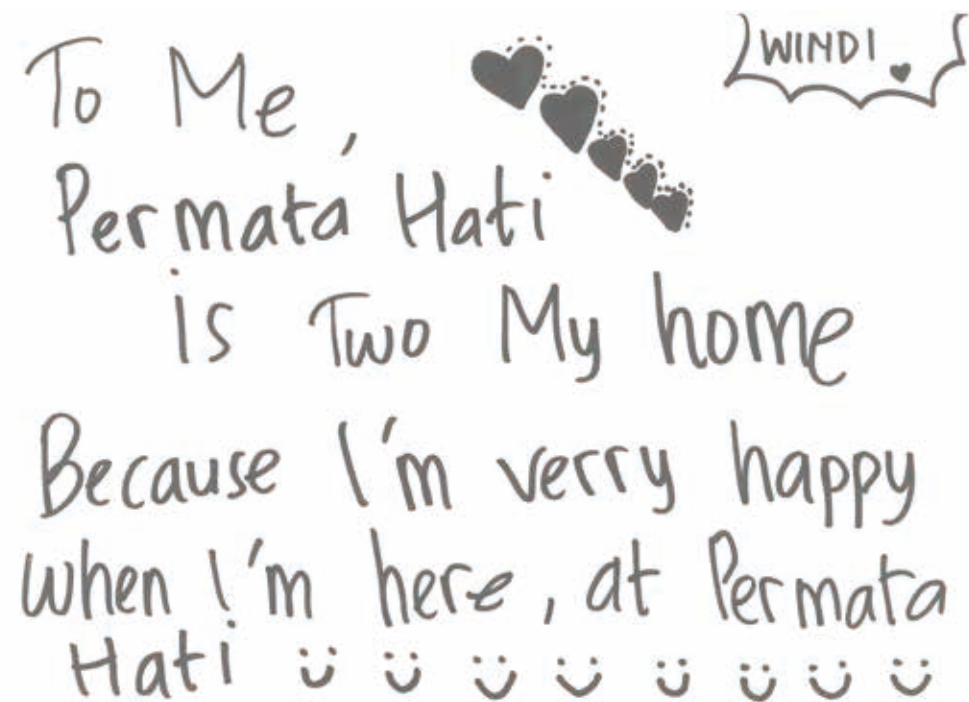 WINDI
To Me,
Permata Hati
is Two My home
Because I'm verry happy
when I'm here, at Permata
Hati